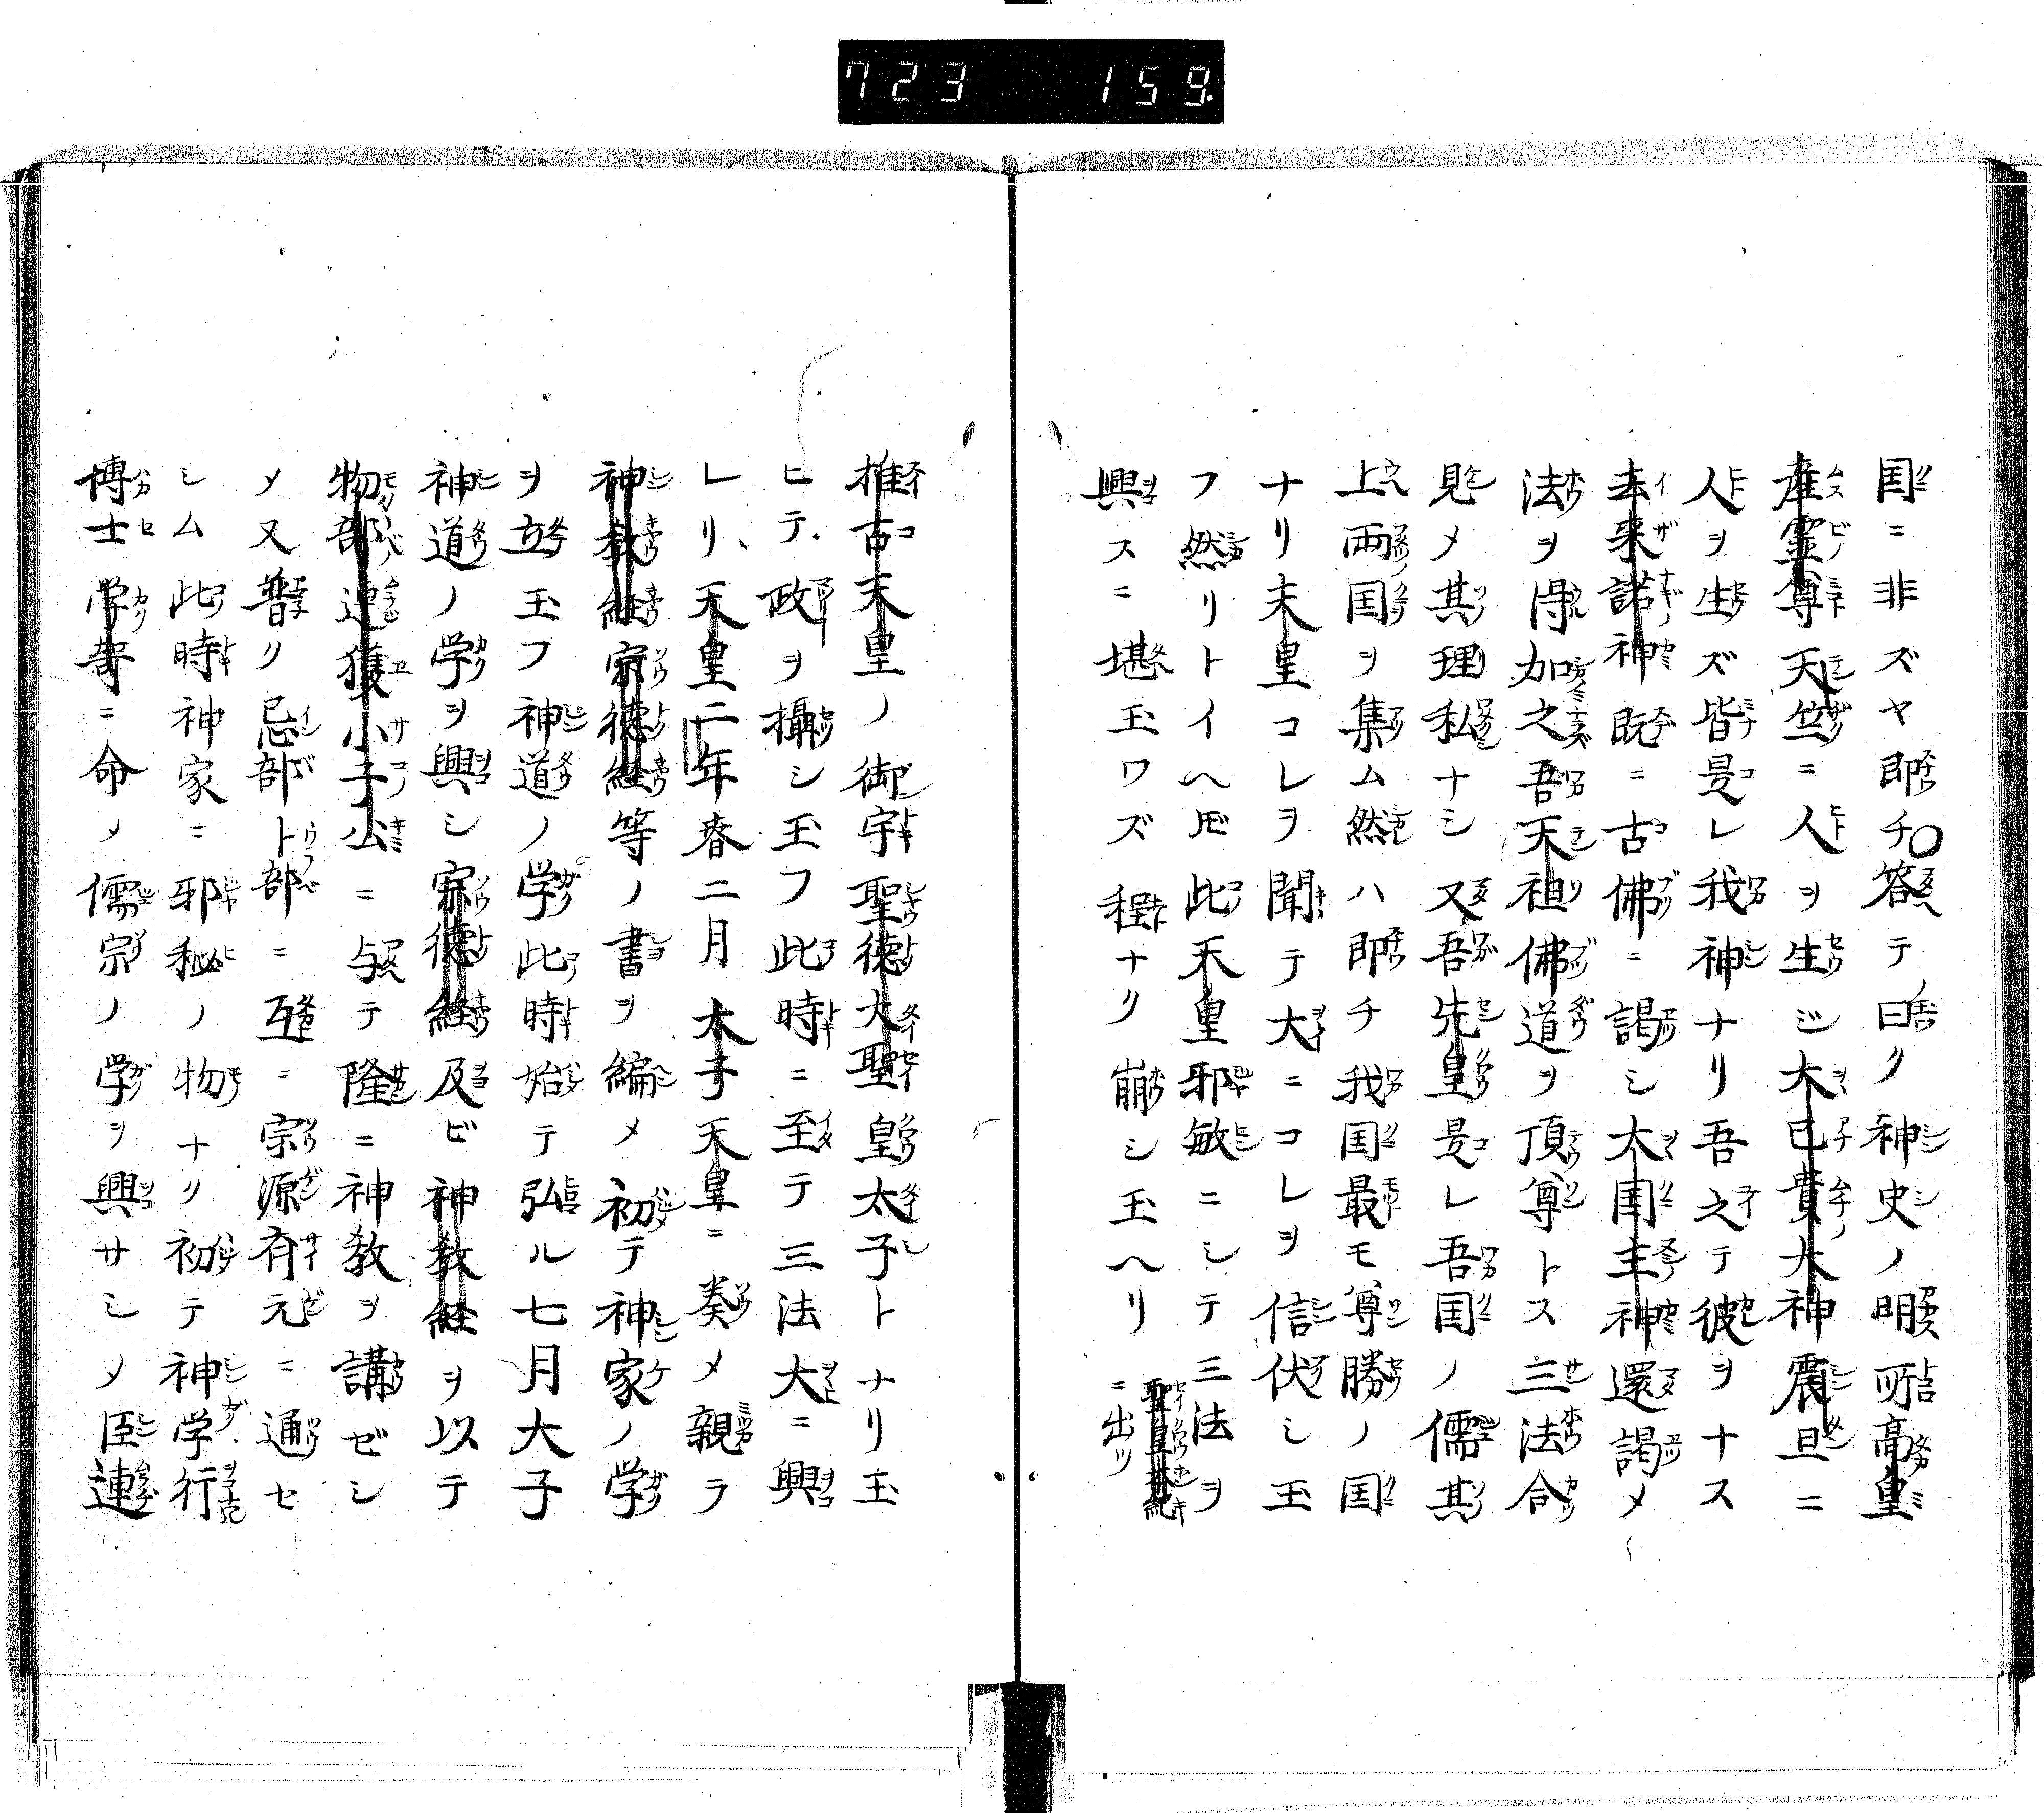 723 159.
国ニ非ズヤ即チ答テ曰ク神史ノ明所高皇
産霊尊天竺ニ人ヲ生ジ大己貴大神震旦ニ
人ヲ生ズ皆是レ我神ナリ吾之テ彼ヲナス
去来諾神既ニ古佛ニ謁シ大国主神還謁メ
法ヲ得加之吾天祖佛道ヲ頂尊トス三法合
見メ其理私ナシ又吾先皇是レ吾国ノ儒其
上両国ヲ集ム然ハ即チ我国最モ尊勝ノ国
ナリ末皇コレヲ聞テ大ニコレヲ信伏シ玉
フ然リトイヘ𪜈此天皇邪敏ニシテ三法ヲ
興スニ堪玉ワズ程ナク崩シ玉ヘリ 聖皇本紀ニ出ツ
推古天皇ノ御宇聖徳大聖皇太子トナリ玉
ヒテ政ヲ攝シ玉フ此時ニ至テ三法大ニ興
レリ天皇二年春二月太子天皇ニ奏メ親ラ
神教経宗徳経等ノ書ヲ編メ初テ神家ノ学
ヲ立玉フ神道ノ学此時始テ弘ル七月大子
神道ノ学ヲ興シ宗徳経及ビ神教経ヲ以テ
物部連獲小子公ニ与テ隆ニ神教ヲ講ゼシ
メ又普ク忌部卜部ニ互ニ宗源斉元ニ通セ
シム此時神家ニ邪秘ノ物ナリ初テ神学行
博士学哿ニ命メ儒宗ノ学ヲ興サシメ臣連